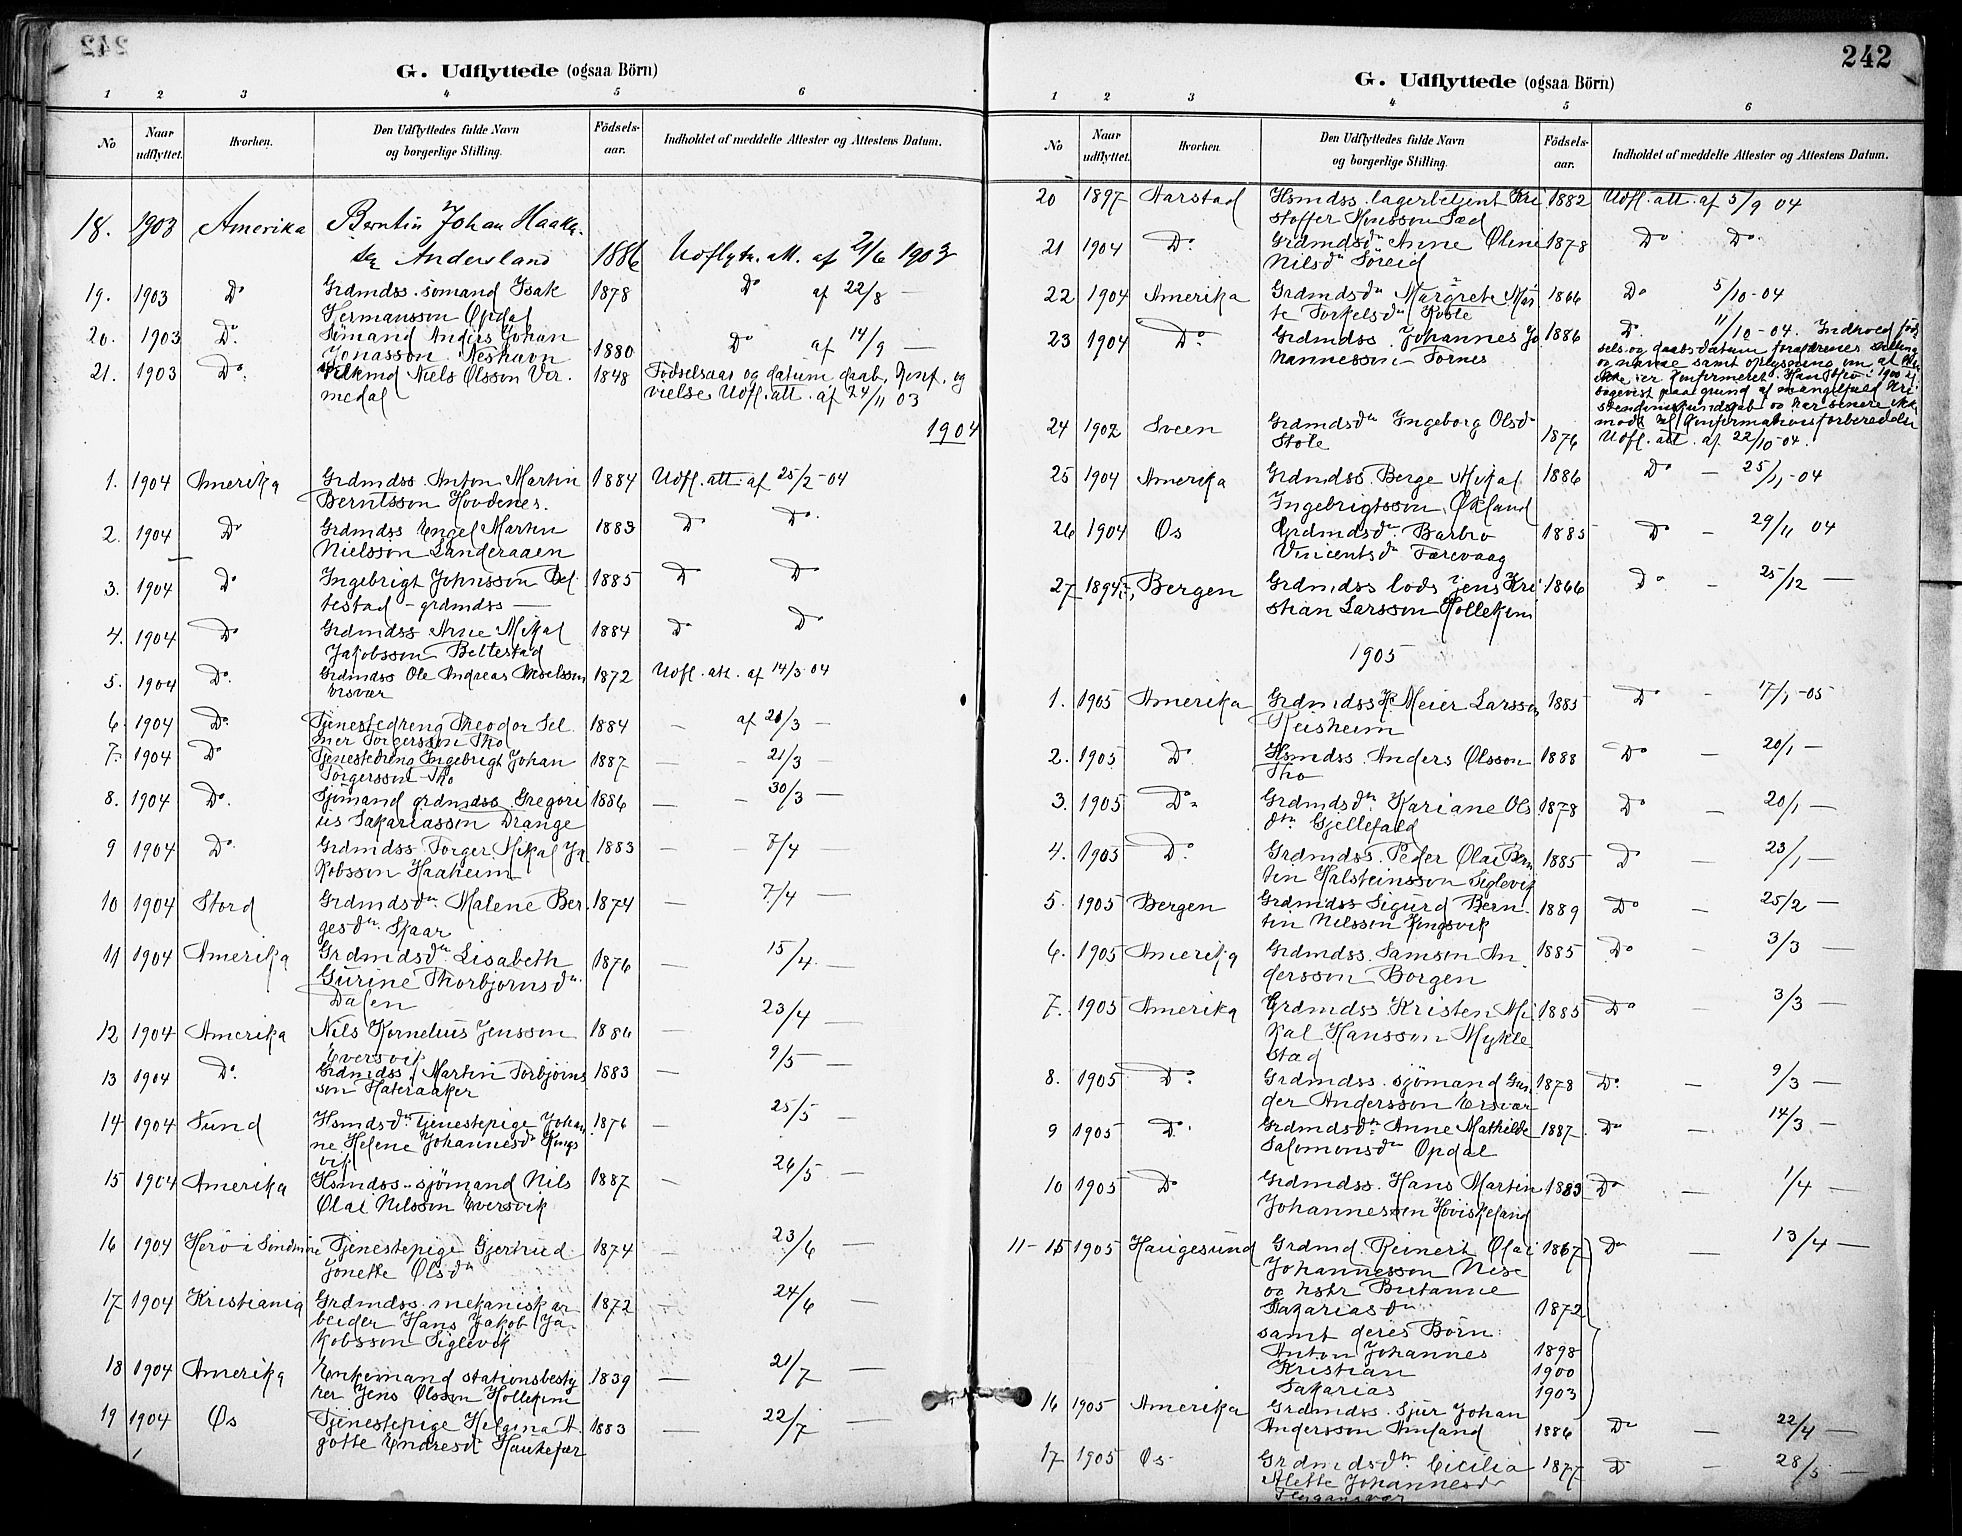 242
G. Udflyttede (ogsaa Börn)
1 2 3 4 5 6
No Naar udflyttet. Hvorhen. Den Udflyttedes fulde Navn og borgerlige Stilling. Födsels-aar. Indholdet af meddelte Attester og Attestens Datum.
18. 1903 Amerika Berntin Johan Haaka-
sen Andersland 1886 Udflytn. att. af 2/6 1903
19. 1903 Do Grdmdss. sömand Isak 1878 Do af 22/8 —
Hermansson Opdal
20. 1903 Do. Sömand Anders Johan
Jonasson Neshavn 1880 Do af 14/9 —
21. 1903 Do. Niels Olsson Ver- 1848 Födselsaar og datum daab, Konf. og
medal vielse Udfl. att. af 24/11 03
1904
1. 1904 Amerika Grdmdss. Anton Martin 1884 Udfl. att. af 25/2 -04
Berntsson Hovdenes.
2. 1904 Do Grdmdss Engel Martin 1883 Do Do.
Nielsson Landeraaen
3. 1904 Do Ingebrigt Johnsson Bel- 1885 Do Do
testad - grdmdss —
4. 1904 Do Grdmdss Arne Mikal 1884 Do Do
Jakobsson Beltestad
5. 1904 Do. Grdmdss Ole Andreas 1872 Udfl. att. af 14/3 -04
6. 1904 Do. Tjenestedreng Theodor Sel- 1884 — af 21/3 —
mer Torgersson Tho
7. 1904 Do Tjenestedreng Ingebrigt Johan 1887 — - 21/3 —
Torgersson Tho
8. 1904 Do. Sjömand grdmdss Gregori- 1886 — - 30/3 —
us Sakariasson Drange
9 1904 Do. Grdmdss Torger Mikal Ja- 1883 — - 7/4 —
kobsson Haaheim
10 1904 Stord Grdmdsdtr. Malene Ber- 1874 — 7/4 —
gesdtr. Skaar
11 1904 Amerika Grdmdsdtr Lisabeth 1876 — 15/4 —
Gurine Thorbjörnsdtr.
Dalen
12 1904 Amerika Nils Kornelius Jensson 1886 — 23/4 —
Eversvik
13 1904 Do. Grdmdss. Martin Torbjörns- 1883 — 9/5 —
son Hateraaker
14 1904 Sund Hsmdsdtr. Tjenestepige Johan- 1876 — 25/5 —
ne Helene Johannesdtr Kongs-
vik
15 1904 Amerika Hsmdss. sjömand Nils 1887 — 26/5 —
Olai Nilsson Eversvik
16 1904 Herö i Söndmöre Tjenestepige Gjertrud 1874 — 23/6 —
Jonette Olsdtr
17 1904 Kristiania Grdmdss. mekanisk ar- 1872 — 24/6 —
beider Hans Jakob Ja-
kobsson Siglevik
18 1904 Amerika Enkemand stationsbesty- 1839 — 21/7 —
rer Jens Olsson Hollekim
19 1904 Os Tjenestepige Helgina A- 1883 — 22/7 —
gotte Endresdtr Haukefær
242
G. Udflyttede (ogsaa Börn)
1 2 3 4 5 6
No Naar udflyttet. Hvorhen. Den Udflyttedes fulde Navn og borgerlige Stilling. Födsels-aar. Indholdet af meddelte Attester og Attestens Datum.
20 1897 Aarstad Hsmdss. lagerbetjent Kri- 1882 Udfl. att. af 5/9 04
stoffer Monsson Sæd
21 1904 Do. Grdmdsdtr Anne Oline 1878 Do Do.
Nilsdtr Söreid
22 1904 Amerika Grdmdsdtr Margrete Mar- 1866 Do 5/10-04
te Torkelsdtr
23 1904 Do. Grdmdss. Johannes Jo- 1886 Do. 11/10-04. Indhold föd-
hannesson Tornes sels og daabsdatum forældrenes stilling
og navne samt oplysning om, at
ikke er konfirmeret. Han blev i 1900
paa grund af mangelfuld Kri-
stendomskundskab og har senere ikke
mödt til Konfirmationsforberedelse
24 1902 Sveen Grdmdsdtr Ingeborg Olsdtr 1876 Udfl. att. af 22/10-04.
Stole
25 1904 Amerika Grdmdss Berge Mikal 1886 Do — 25/11-04
Ingebrigtsson Økland
26 1904 Os Grdmdsdtr. Barbro 1885 Do — 29/11 04
Vincentsdtr Færevaag
27 1894 Bergen Grdmdss lods Jens Kri- 1866 Do — 25/12 —
stian Larsson Hollekim
1905
1. 1905 Amerika Grdmdss K. Meier Larsson 1885 Do — 17/1-05
Reisheim
2. 1905 Do. Hsmdss. Anders Olsson 1888 Do — 20/1 —
Tho
3. 1905 Do. Grdmdsdtr. Kariane Ols- 1878 Do — 20/1 —
dtr. Gjellefald
4. 1905 Do. Grdmdss. Peder Olai Bern- 1885 Do — 23/1 —
tin Halsteinsson Siglevik
5. 1905 Bergen Grdmdss Sigurd Bern- 1889 Do — 25/2 —
tin Nilsson Kongsvik
6. 1905 Amerika Grdmdss. Samson An- 1885 Do — 3/3 —
dersson Borgen
7. 1905 Amerika Grdmdss. Kristen Mi- 1885 Do — 3/3 —
kal Hansson Mykle-
stad
8. 1905 Do. Grdmdss. sjömand Gun- 1878 Do. — 9/3 —
der Andersson Ersvær
9 1905 Do. Grdmdsdtr. Anne Mathilde 1887 Do — 14/3 —
Salomonsdtr Opdal
10 1905 Do Grdmdss. Hans Martin 1883 Do — 1/4 —
Johannesson Höviskeland
11-15 1905 Haugesund Grdmd. Reinert Olai 1867 Do — 13/4 —
Johannesson Nese
og hstr Britanne
Sakariasdtr 1872
samt deres Börn:
Anton Johannes 1898
Kristian 1900
Sakarias 1903
16 1905 Amerika Grdmdss. Sjur Johan
Andersson Amland 1886 Do — 22/4 —
17 1905 Os Grdmdsdtr. Cicilia 1877 Do — 28/5 —
Alette Johannesdtr